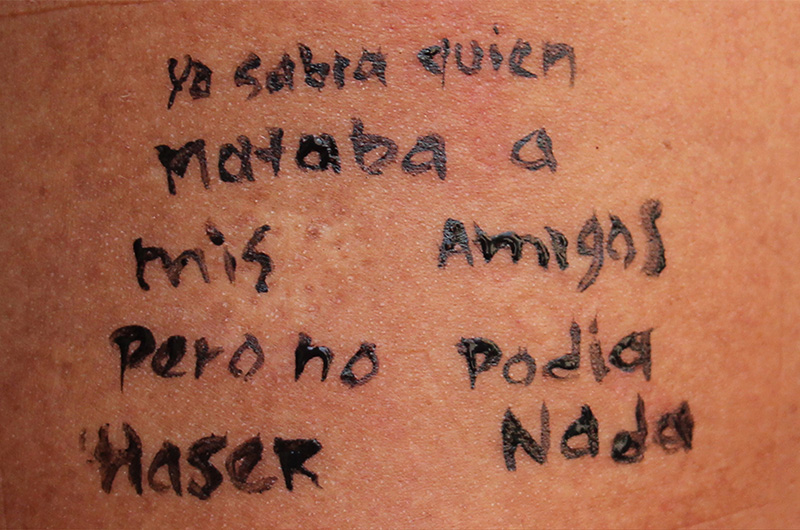 Yo sabia quien
Mataba a
mis Amigos
Pero no Podia
Haser Nada